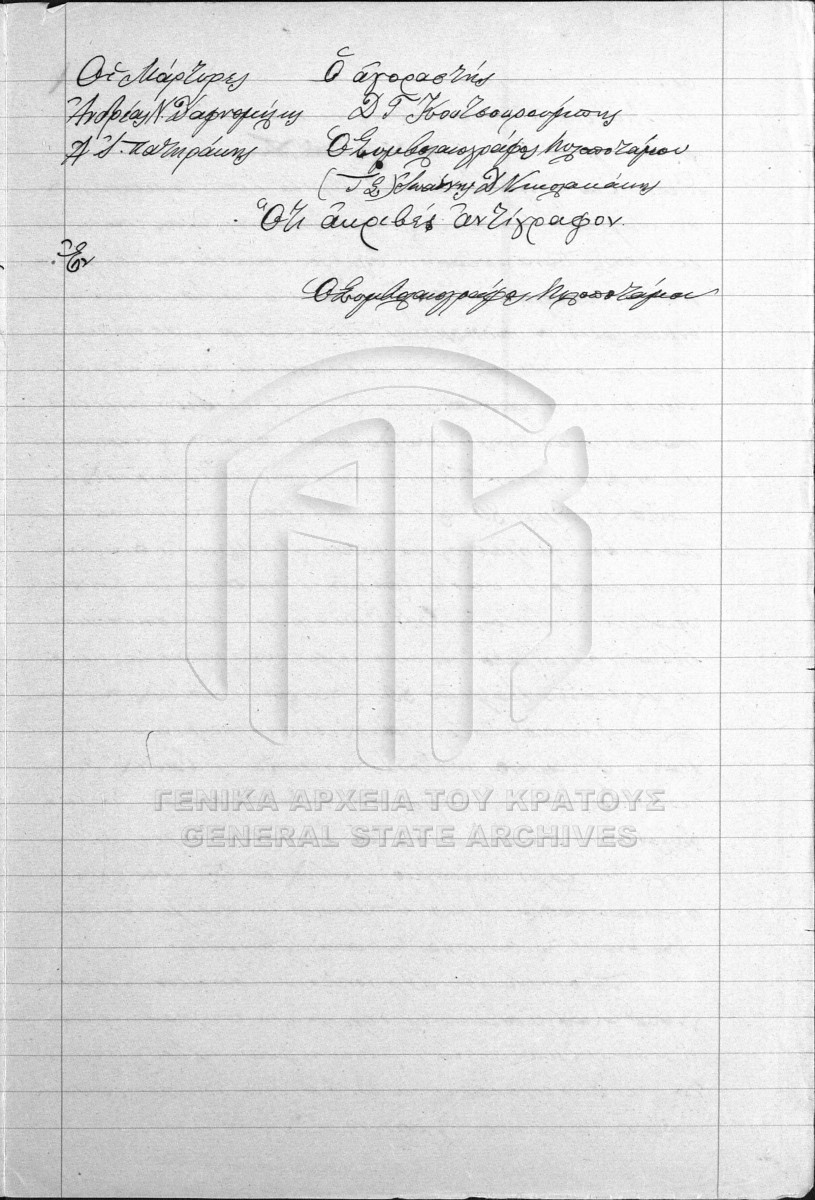 Οἱ Μάρτυρες Ὁ ἀγοραστής
Ἀνδρέας Ν. Δαφνομήλης Δ Γ Κουτσουρούμπης
Α Ι. Πατηράκης Ὁ Συμβολαιογράφος Μυλοποτάμου
(Τ Σ) Ἰωάννης Δ Νικολακάκης
Ὅτι ἀκριβές ἀντίγραφον.
Ὁ Συμβολαιογράφος Μυλοποτάμου
ΓΕΝΙΚΑ ΑΡΧΕΙΑ ΤΟΥ ΚΡΑΤΟΥΣ
GENERAL STATE ARCHIVES